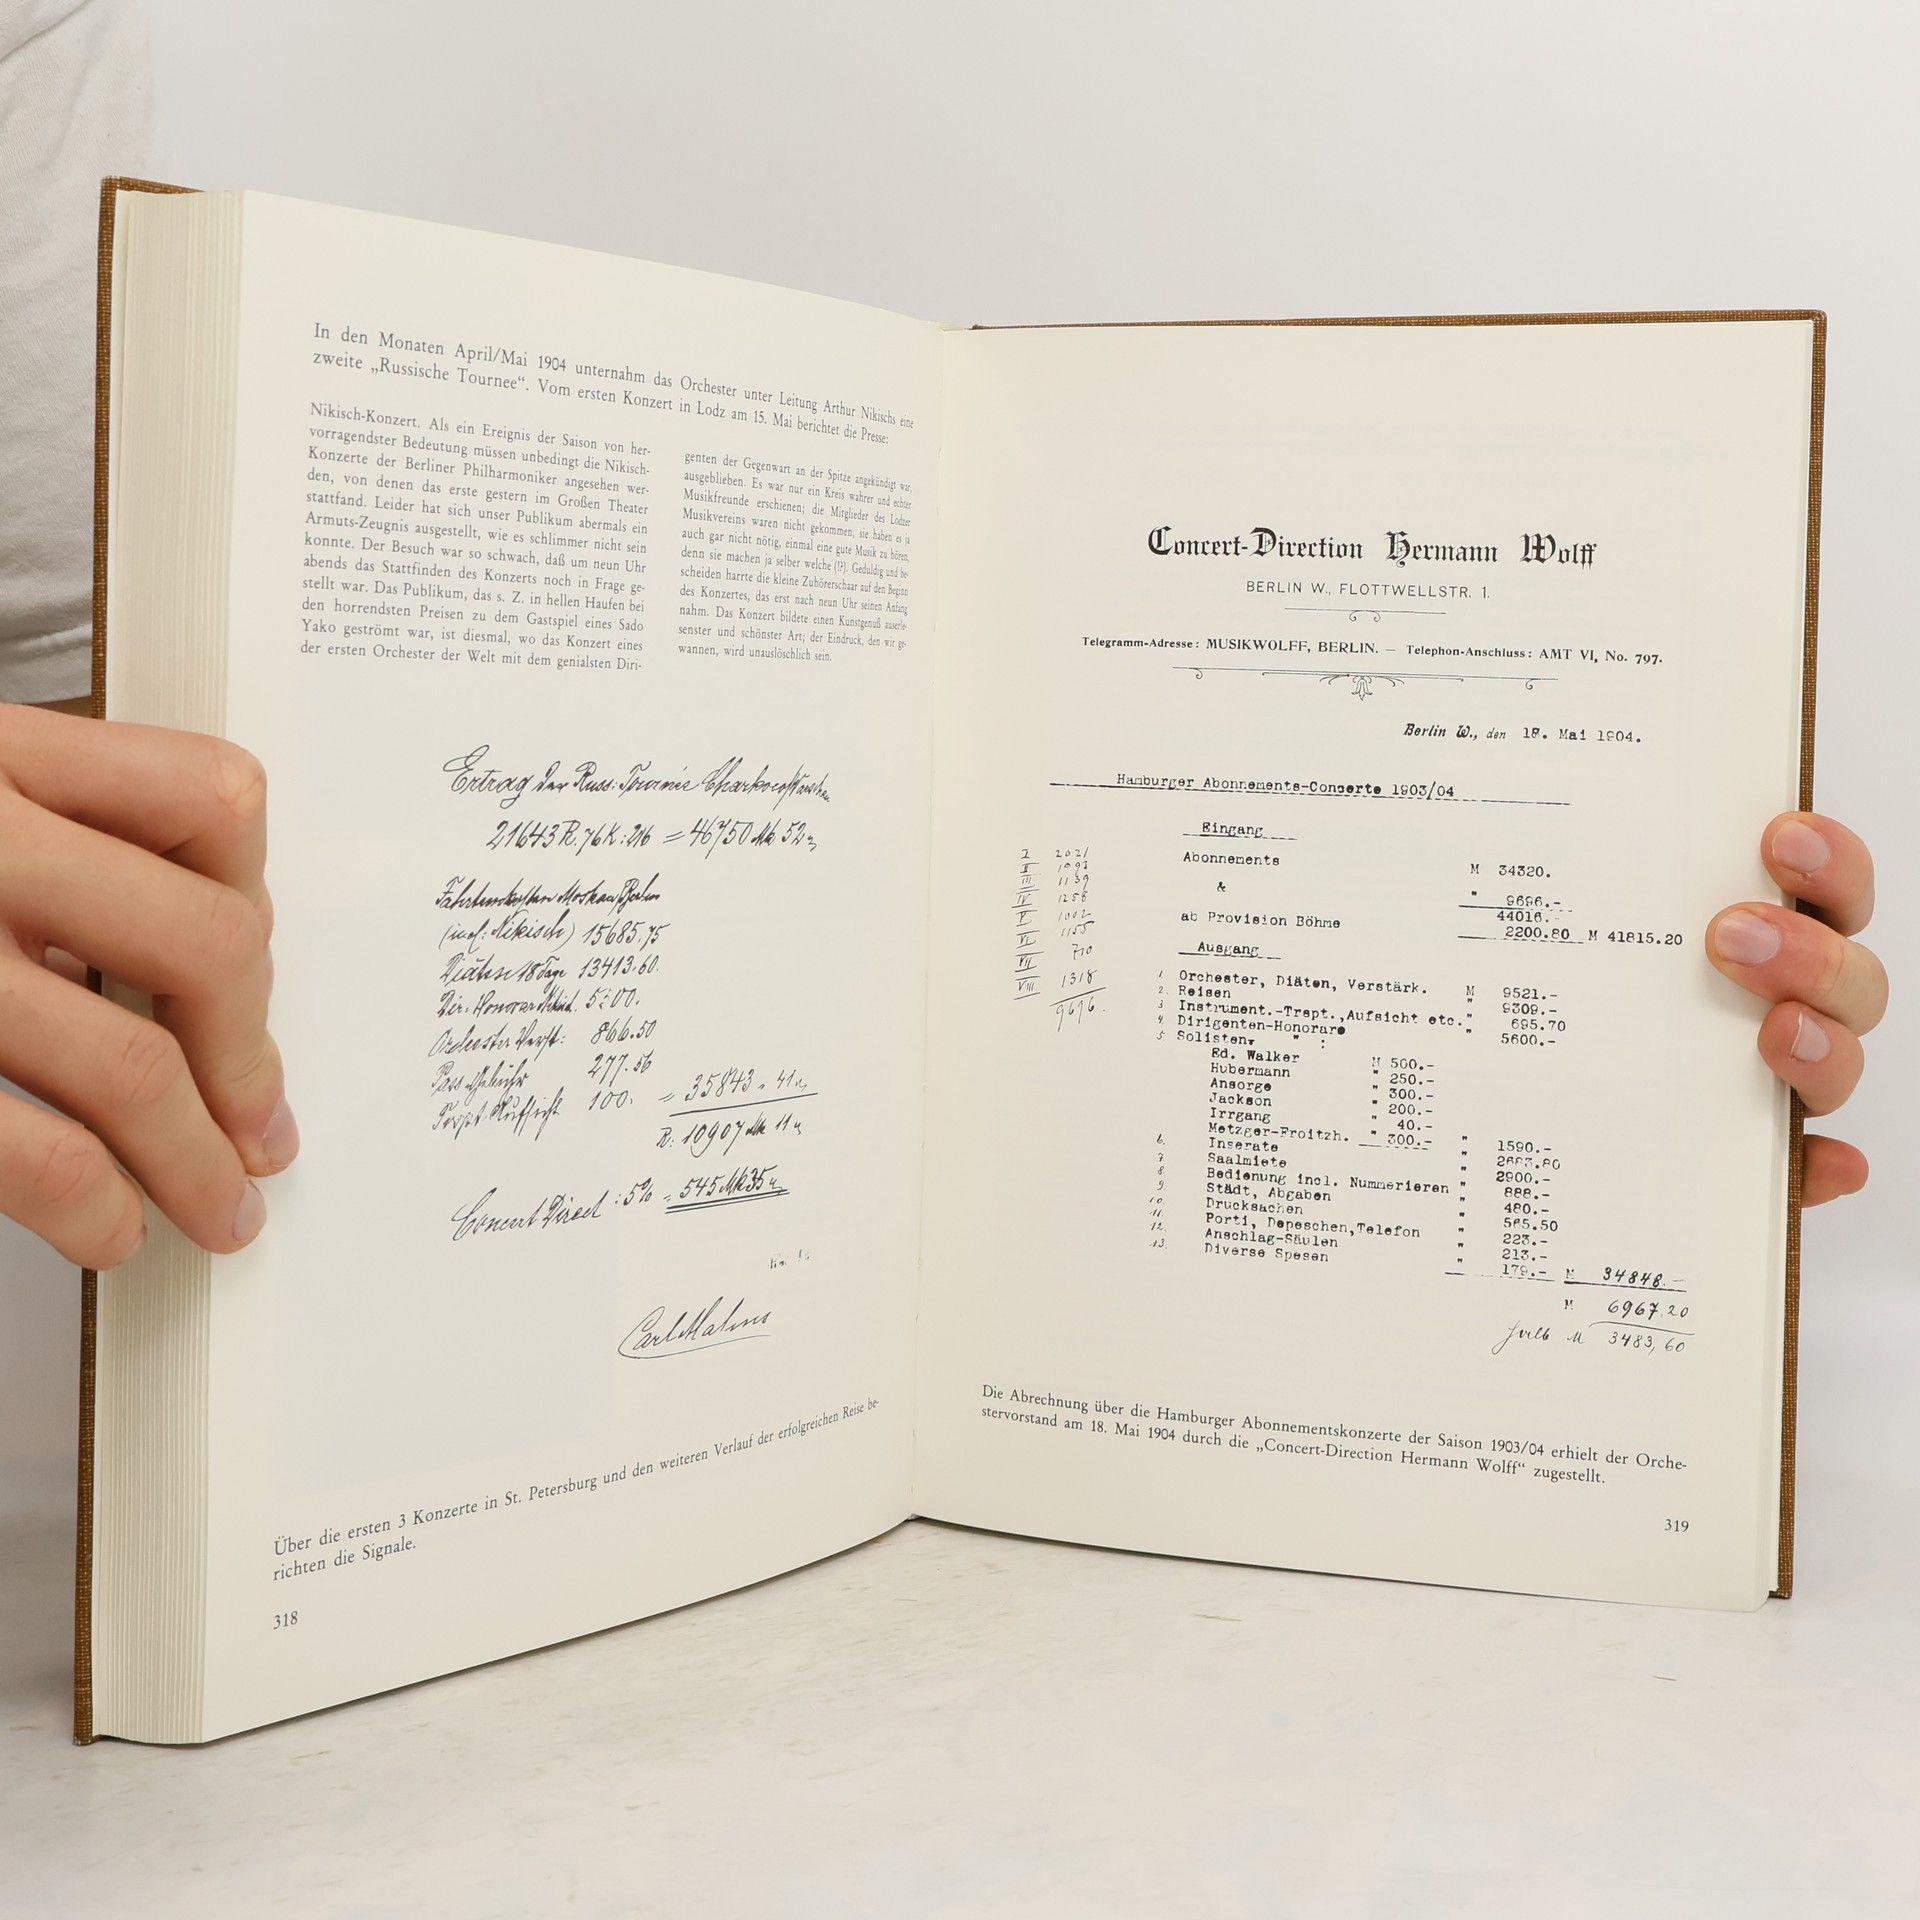 In den Monaten April/Mai 1904 unternahm das Orchester unter Leitung Arthur Nikischs eine
zweite „Russische Tournee“. Vom ersten Konzert in Lodz am 15. Mai berichtet die Presse:
Nikisch-Konzert. Als ein Ereignis der Saison von her-
vorragendster Bedeutung müssen unbedingt die Nikisch-
Konzerte der Berliner Philharmoniker angesehen wer-
den, von denen das erste gestern im Großen Theater
stattfand. Leider hat sich unser Publikum abermals ein
Armuts-Zeugnis ausgestellt, wie es schlimmer nicht sein
konnte. Der Besuch war so schwach, daß um neun Uhr
abends das Stattfinden des Konzerts noch in Frage ge-
stellt war. Das Publikum, das s. Z. in hellen Haufen bei
den horrendsten Preisen zu dem Gastspiel eines Sado
Yako geströmt war, ist diesmal, wo das Konzert eines
der ersten Orchester der Welt mit dem genialsten Diri-
genten der Gegenwart an der Spitze angekündigt war,
ausgeblieben. Es war nur ein Kreis wahrer und echter
Musikfreunde erschienen; die Mitglieder des Lodzer
Musikvereins waren nicht gekommen, sie haben es ja
auch gar nicht nötig, einmal eine gute Musik zu hören,
denn sie machen ja selber welche (!?). Geduldig und be-
scheiden harrte die kleine Zuhörerschaar auf den Beginn
des Konzertes, das erst nach neun Uhr seinen Anfang
nahm. Das Konzert bildete einen Kunstgenuß auserle-
senster und schönster Art; der Eindruck, den wir ge-
wannen, wird unauslöschlich sein.
Ertrag der Russ. Tournée Charkow/Warschau
21643 R. 76 K : 216 = 46750 Mk 52
Fahrtunkosten Moskau/Berlin
(incl: Nikisch) 15685.75
Diäten 18 Tage 13413.60.
Dir. Honorar Nikisch.
Orchester Verst: 866.50
Pass Gebühr 277.56
Transp. Aufsicht 100. = 35843 . 41
R: 10907 Mk 11
Concert Direct : 5% = 545 Mk 35
Über die ersten 3 Konzerte in St. Petersburg und den weiteren Verlauf der erfolgreichen Reise be-
richten die Signale.
318
Concert-Direction Hermann Wolff
BERLIN W., FLOTTWELLSTR. 1.
Telegramm-Adresse: MUSIKWOLFF, BERLIN. — Telephon-Anschluss: AMT VI, No. 797.
Berlin W., den 18. Mai 1904.
Hamburger Abonnements-Concerte 1903/04
Eingang
I 2021
II 1093
III 1139
IV 1256
V 1002
VI 1155
VII 710
VIII 1318
9696.
Abonnements M 34320.
& " 9696.-
44016.-
ab Provision Böhme 2200.80 M 41815.20
Ausgang
1. Orchester, Diäten, Verstärk. M 9521.-
2. Reisen " 9309.-
3. Instrument.-Trspt.,Aufsicht etc. " 695.70
4. Dirigenten-Honorare " 5600.-
5. Solisten- " :
Ed. Walker M 500.-
Hubermann " 250.-
Ansorge " 300.-
Jackson " 200.-
Irrgang " 40.-
Metzger-Froitzh. " 300.- " 1590.-
6. Inserate " 2683.80
7. Saalmiete " 2900.-
8. Bedienung incl. Nummerieren " 888.-
9. Städt, Abgaben " 480.-
10. Drucksachen " 565.50
11. Porti, Depeschen,Telefon " 223.-
12. Anschlag-Säulen " 213.-
13. Diverse Spesen " 179.- M 34848.-
M 6967.20
halb M 3483,60
Die Abrechnung über die Hamburger Abonnementskonzerte der Saison 1903/04 erhielt der Orche-
stervorstand am 18. Mai 1904 durch die „Concert-Direction Hermann Wolff“ zugestellt.
319